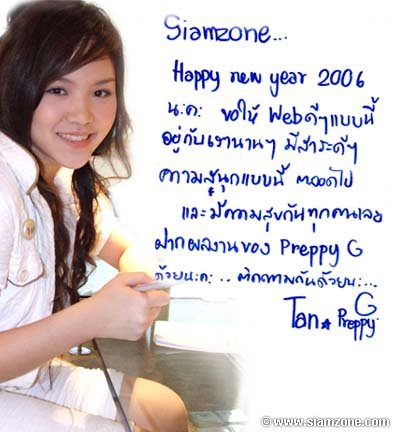 Siamzone...
Happy new year 2006
น:ค: ขอให้ Webดีๆแบบนี้
อยู่กับเรานานๆ มีสาระดีๆ
ความสนุกแบบนี้ ตลอดไป
และมีความสุขกันทุกคนเลย
ฝากผลงานของ Preppy G
ด้วยน:ค: .. ติดตามกันด้วยน:...
Tan Preppy G
© www.siamzone.com